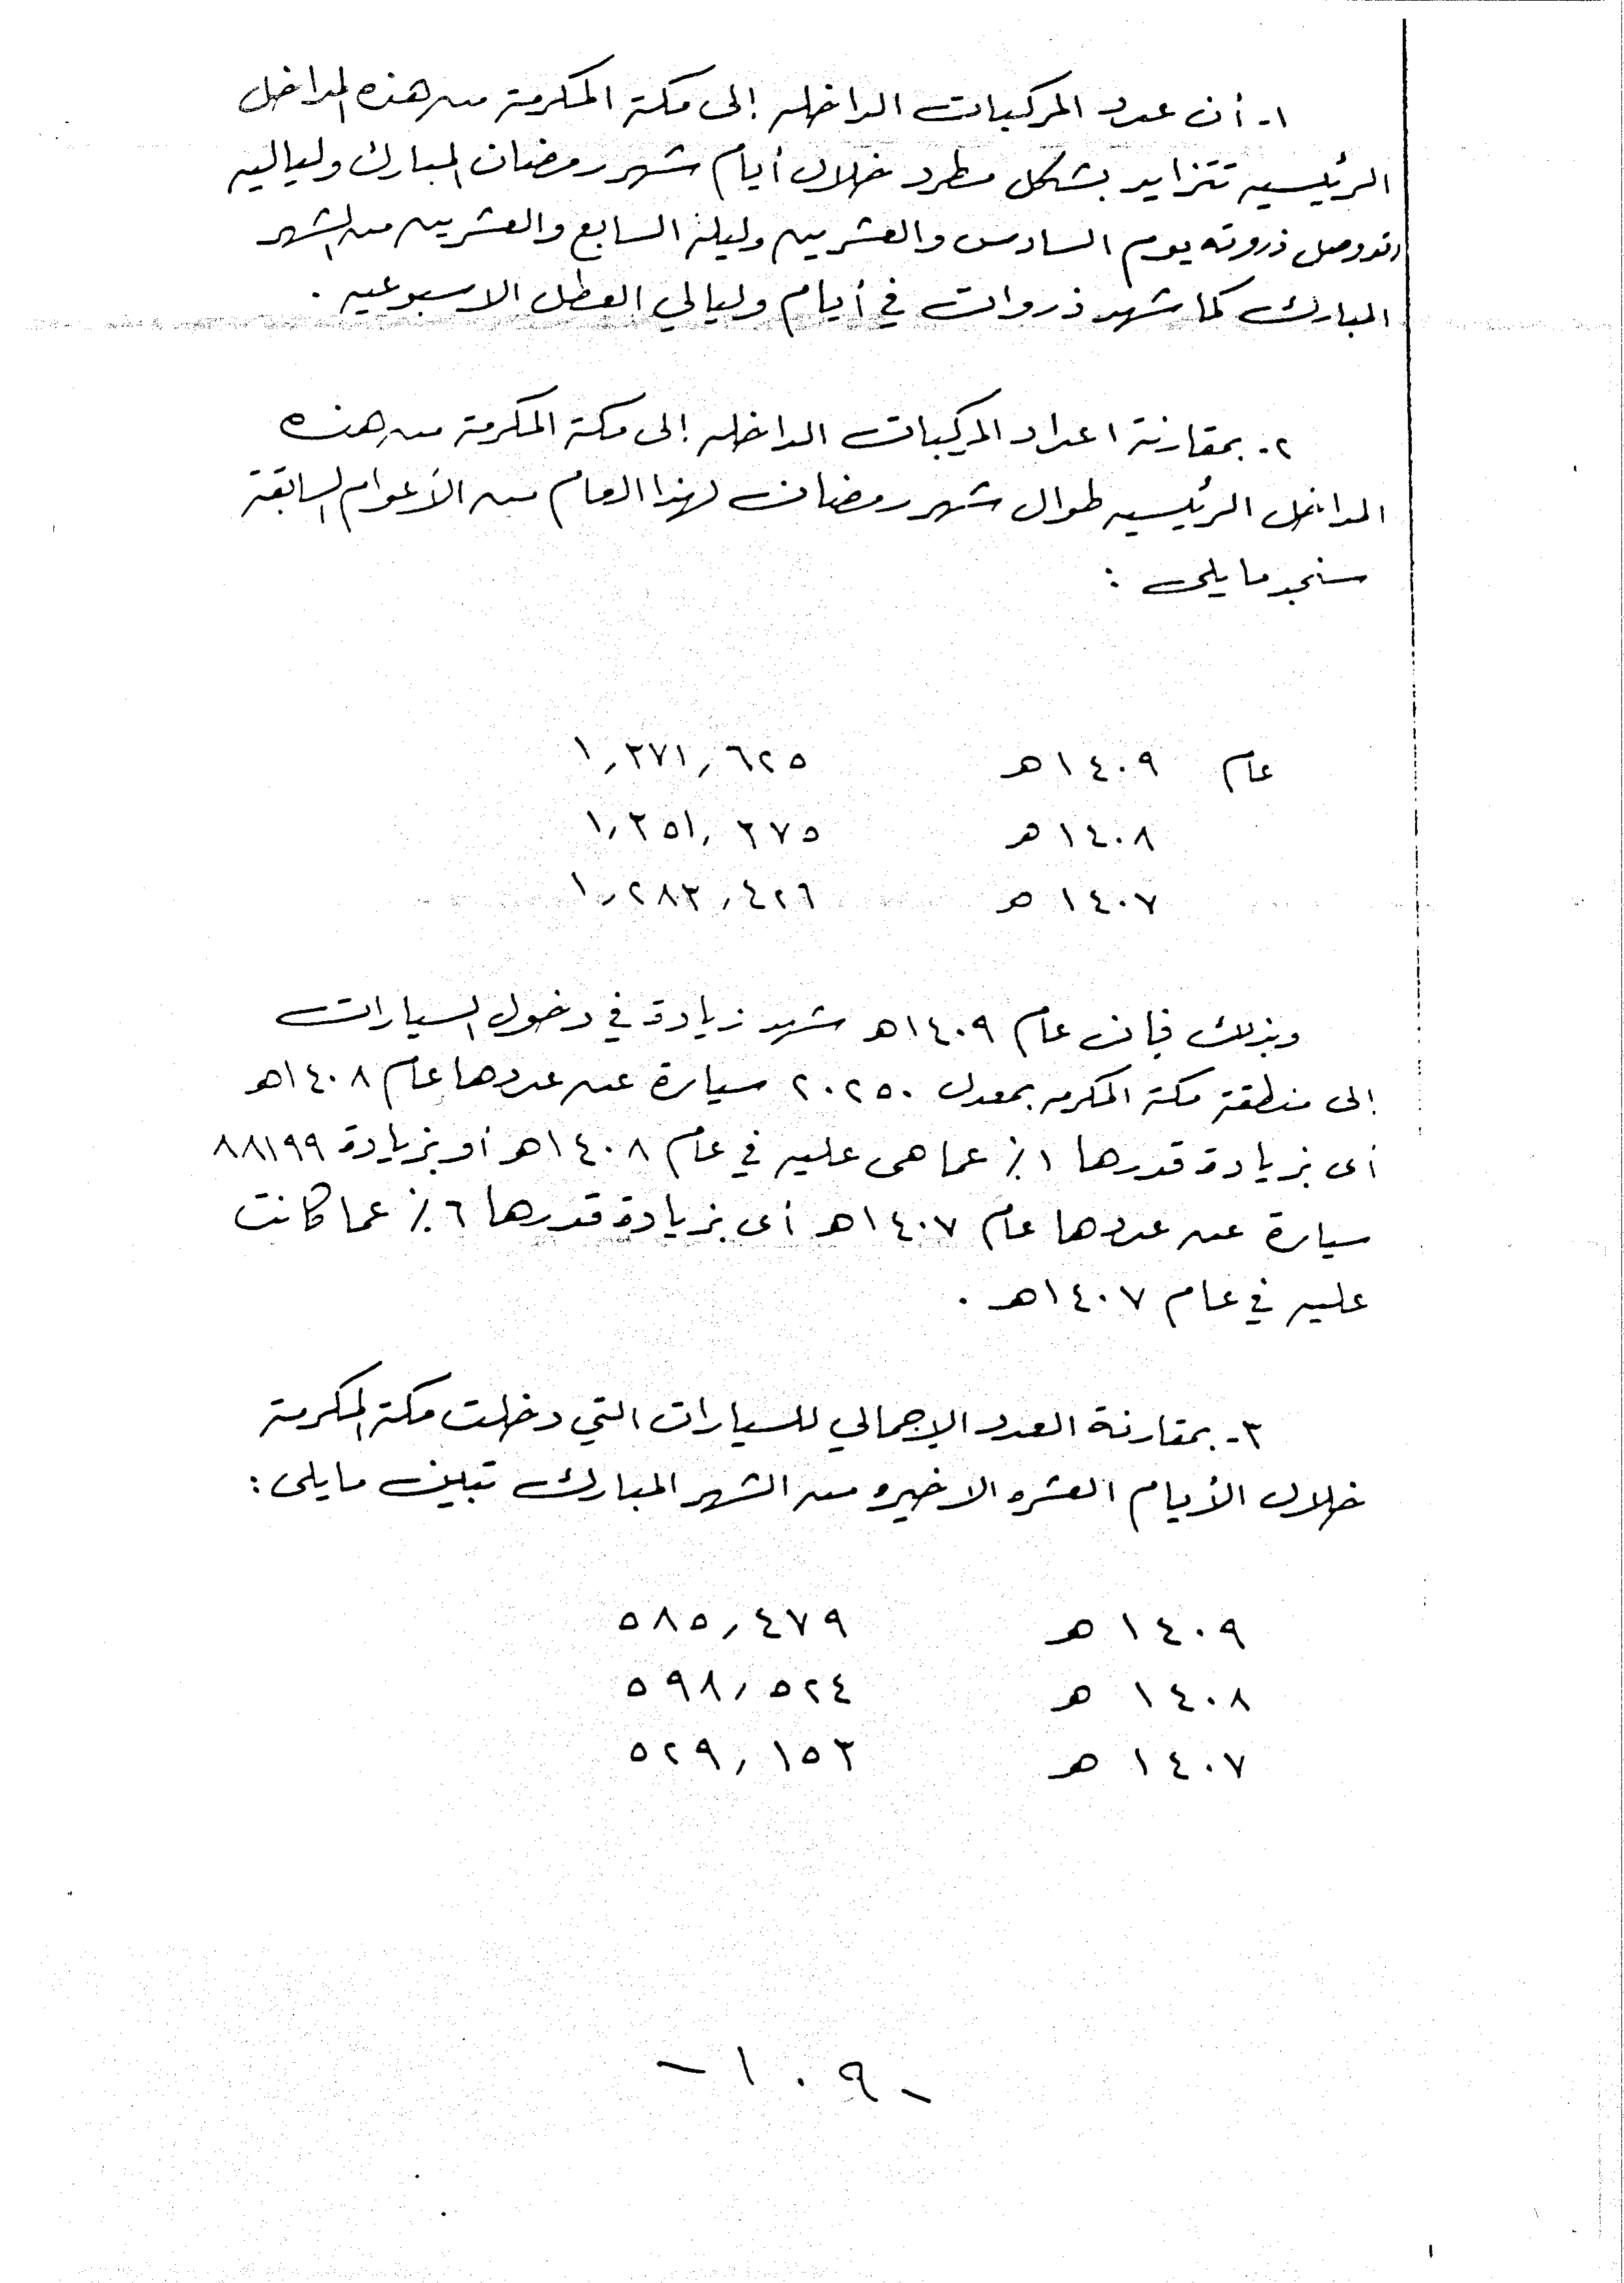 ١- أن عدد المركبات الداخله إلى مكة المكرمة من هذه المداخل
الرئيسيه تتزايد بشكل مطرد خلال أيام شهر رمضان المبارك ولياليه
وصل ذروته يوم السادس والعشرين وليلة السابع والعشرين من الشهر
المبارك كما شهد ذروات في أيام وليالي العطل الاسبوعيه .
٢- بمقارنة اعداد المركبات الداخله إلى مكة المكرمة من هذه
المداخل الرئيسيه طوال شهر رمضان لهذا العام من الأعوام السابقة
سنجد مايلى :
عام ١٤٠٩هـ ١,٣٧١,٦٢٥
١٤٠٨هـ ١,٣٥١,٣٧٥
١٤٠٧هـ ١,٢٨٣,٤٢٦
وبذلك فإن عام ١٤٠٩هـ شهد زيادة في دخول السيارات
إلى منطقة مكة المكرمه بمعدل ٢٠٢٥٠ سيارة عن عددها عام ١٤٠٨هـ
أى بزيادة قدرها ١٪ عما هى عليه في عام ١٤٠٨هـ أو بزيادة ٨٨١٩٩
سيارة عن عددها عام ١٤٠٧هـ أى بزيادة قدرها ٦٪ عما كانت
عليه في عام ١٤٠٧هـ .
٣- بمقارنة العدد الإجمالي للسيارات التي دخلت مكة المكرمة
خلال الأيام العشره الاخيره من الشهر المبارك تبين مايلى :
١٤٠٩ هـ ٥٨٥,٤٧٩
١٤٠٨ هـ ٥٩٨,٥٢٤
١٤٠٧ هـ ٥٢٩,١٥٣
- ١٠٩ -